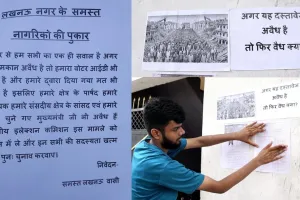 लखनऊ नगर के समस्त
नागरिकों की पुकार
से हम सभी का एक ही सवाल है अगर
मकान अवैध है तो हमारा वोटर आईडी भी
है और हमारे द्वारा दिया गया मत भी
है इसलिए हमारे क्षेत्र के पार्षद हमारे
यक हमारे संसदीय क्षेत्र के सांसद एवं हमारे
चुने गए मुख्यमंत्री जी भी अवैध है
इलेक्शन कमिशन इस मामले को
में ले और इन सभी की सदस्यता खत्म
पुनः चुनाव करवाए।
निवेदन-
समस्त लखनऊ वासी
अगर यह दस्तावे
अवैध है
तो फिर वैध क्या
अगर यह दस्तावेज
अवैध है
तो फिर वैध क्या